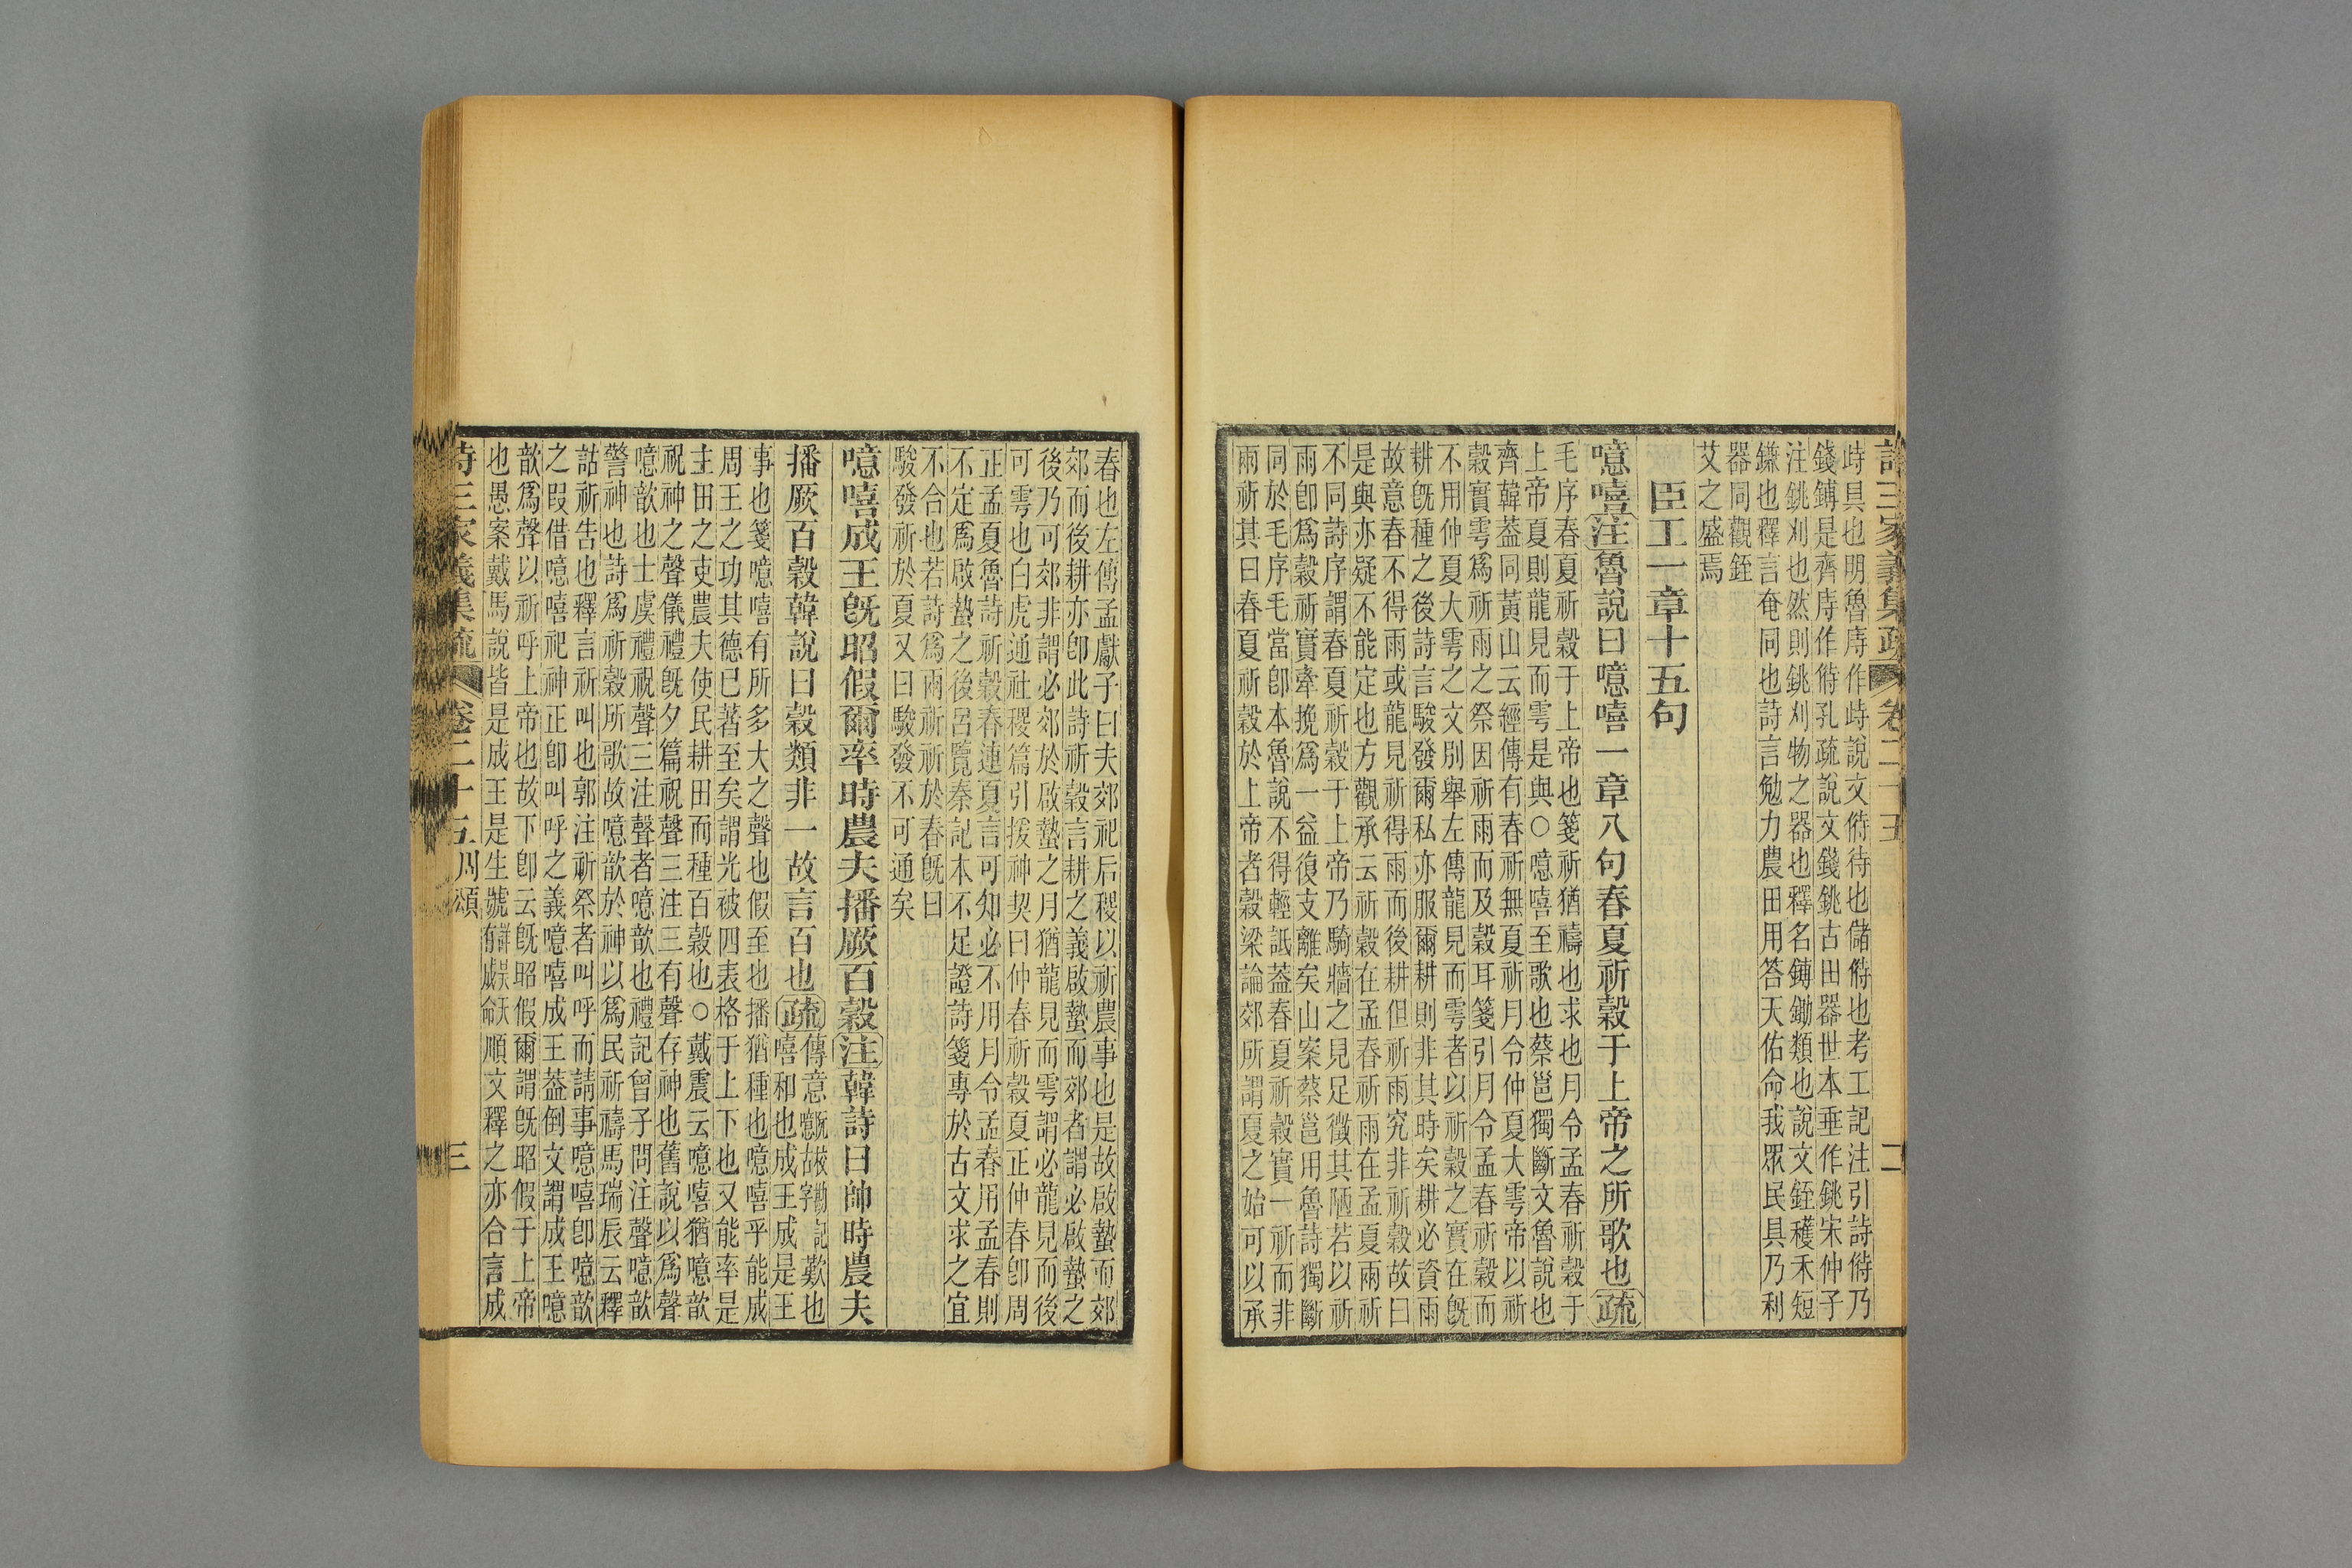 詩三家義集疏 卷二十五 二
峙具也明魯庤作峙說文偫待也儲偫也考工記注引詩偫乃
錢鎛是齊庤作偫孔疏說文錢銚古田器世本垂作銚宋仲子
注銚刈也然則銚刈物之器也釋名鎛鋤類也說文銍穫禾短
鎌也釋言奄同也詩言勉力農田用答天佑命我眾民具乃利
器同觀銍
艾之盛焉
臣工一章十五句
噫嘻注魯說曰噫嘻一章八句春夏祈穀于上帝之所歌也疏
毛序春夏祈穀于上帝也箋祈猶禱也求也月令孟春祈穀于
上帝夏則龍見而雩是與○噫嘻至歌也蔡邕獨斷文魯說也
齊韓葢同黃山云經傳有春祈無夏祈月令仲夏大雩帝以祈
穀實雩爲祈雨之祭因祈雨而及穀耳箋引月令孟春祈穀而
不用仲夏大雩之文別舉左傳龍見而雩者以祈穀之實在旣
耕旣種之後詩言駿發爾私亦服爾耕則非其時矣耕必資雨
故意春不得雨或龍見祈得雨而後耕但祈雨究非祈穀故曰
是與亦疑不能定也方觀承云祈穀在孟春祈雨在孟夏兩祈
不同詩序謂春夏祈穀于上帝乃騎牆之見足徵其陋若以祈
雨卽爲穀祈實牽挽爲一益復支離矣山案蔡邕用魯詩獨斷
同於毛序毛當卽本魯說不得輕詆葢春夏祈穀實一祈而非
雨祈其曰春夏祈穀於上帝者穀梁論郊所謂夏之始可以承
春也左傳孟獻子曰夫郊祀后稷以祈農事也是故啟蟄而郊
郊而後耕亦卽此詩祈穀言耕之義啟蟄而郊者謂必啟蟄之
後乃可郊非謂必郊於啟蟄之月猶龍見而雩謂必龍見而後
可雩也白虎通社稷篇引援神契曰仲春祈穀夏正仲春卽周
正孟夏魯詩祈穀春連夏言可知必不用月令孟春用孟春則
不定爲啟蟄之後呂覽秦記本不足證詩箋專於古文求之宜
不合也若詩爲雨祈祈於春旣曰
駿發祈於夏又曰駿發不可通矣
噫嘻成王旣昭假爾率時農夫播厥百穀注韓詩曰帥時農夫
播厥百穀韓說曰穀類非一故言百也疏傳意歎也
嘻和也成王成是王
事也箋噫嘻有所多大之聲也假至也播猶種也噫嘻乎能成
周王之功其德已著至矣謂光被四表格于上下也又能率是
主田之吏農夫使民耕田而種百穀也○戴震云噫嘻猶噫歆
祝神之聲儀禮旣夕篇祝聲三注三有聲存神也舊說以爲聲
噫歆也士虞禮祝聲三注聲者噫歆也禮記曾子問注聲噫歆
警神也詩爲祈穀所歌故噫歆於神以爲民祈禱馬瑞辰云釋
詁祈告也釋言祈叫也郭注祈祭者叫呼而請事噫嘻卽噫歆
之叚借噫嘻祀神正卽叫呼之義噫嘻成王葢倒文謂成王噫
歆爲聲以祈呼上帝也故下卽云旣昭假爾謂旣昭假于上帝
也愚案戴馬說皆是成王是生號詳昊天有成命順文釋之亦合言成
詩三家義集疏 卷二十五 周頌 三